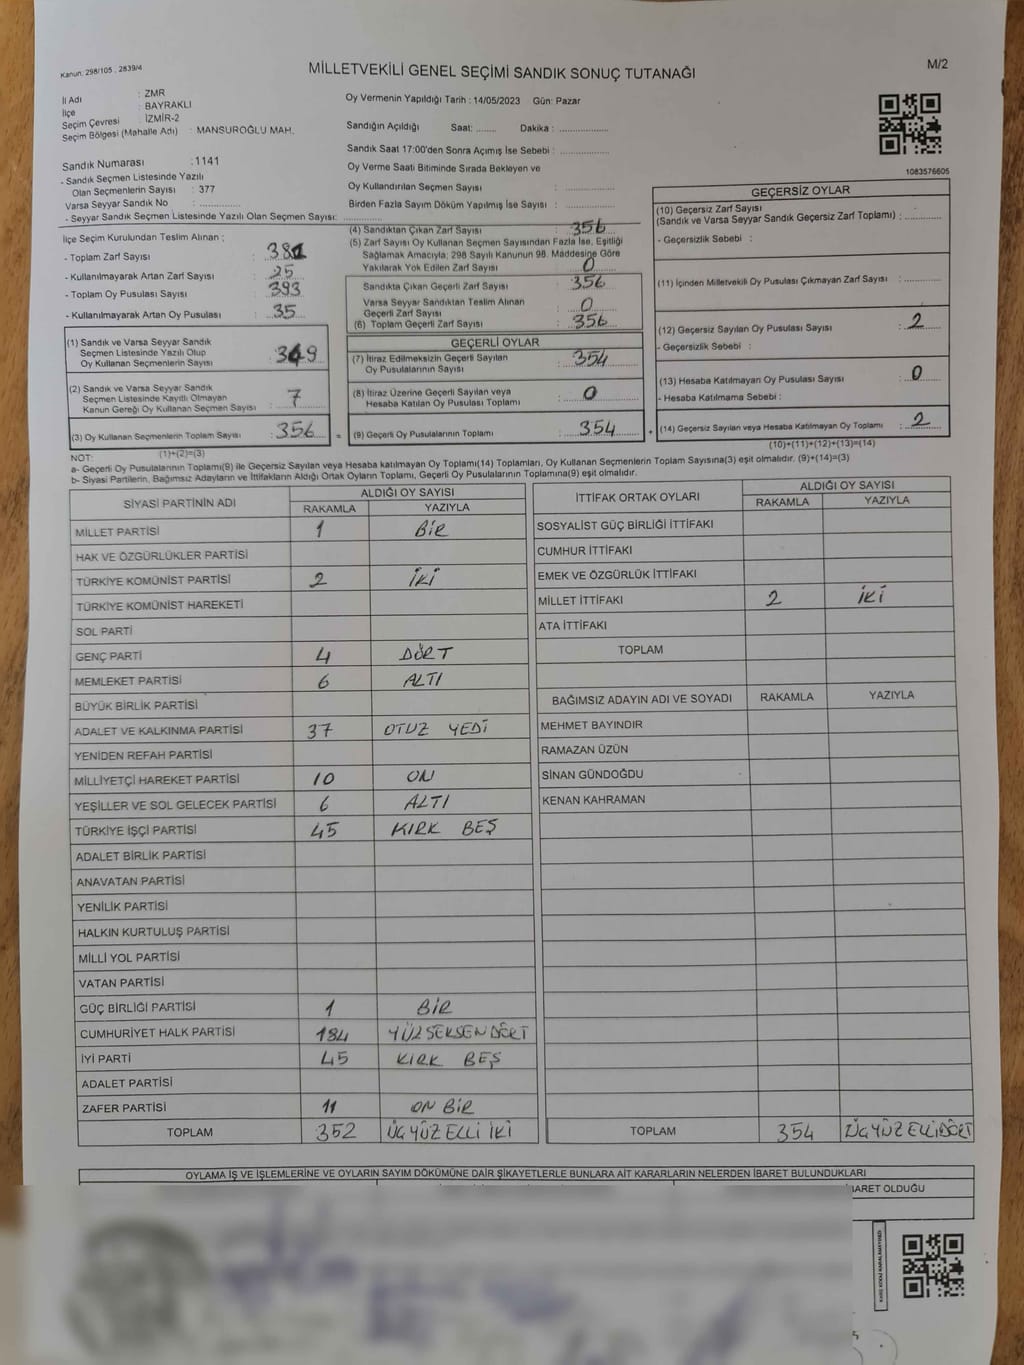 Kanun: 298/105 , 2839/4
MİLLETVEKİLİ GENEL SEÇİMİ SANDIK SONUÇ TUTANAĞI
M/2
İl Adı : ZMR
İlçe : BAYRAKLI
Seçim Çevresi : İZMİR-2
Seçim Bölgesi (Mahalle Adı) : MANSUROĞLU MAH.
Sandık Numarası : 1141
- Sandık Seçmen Listesinde Yazılı
Olan Seçmenlerin Sayısı : 377
Varsa Seyyar Sandık No : ............
- Seyyar Sandık Seçmen Listesinde Yazılı Olan Seçmen Sayısı: ............
Oy Vermenin Yapıldığı Tarih : 14/05/2023 Gün: Pazar
Sandığın Açıldığı Saat: ........ Dakika : ..................
Sandık Saat 17:00'den Sonra Açımış İse Sebebi : ..................
Oy Verme Saati Bitiminde Sırada Bekleyen ve
Oy Kullandırılan Seçmen Sayısı : ..................
Birden Fazla Sayım Döküm Yapılmış İse Sayısı : ..................
1083576605
İlçe Seçim Kurulundan Teslim Alınan :
- Toplam Zarf Sayısı : 381
- Kullanılmayarak Artan Zarf Sayısı : 25
- Toplam Oy Pusulası Sayısı : 393
- Kullanılmayarak Artan Oy Pusulası : 35
(1) Sandık ve Varsa Seyyar Sandık
Seçmen Listesinde Yazılı Olup
Oy Kullanan Seçmenlerin Sayısı : 349
(2) Sandık ve Varsa Seyyar Sandık
Seçmen Listesinde Kayıtlı Olmayan
Kanun Gereği Oy Kullanan Seçmen Sayısı : 7
(3) Oy Kullanan Seçmenlerin Toplam Sayısı : 356
(4) Sandıktan Çıkan Zarf Sayısı : 356
(5) Zarf Sayısı Oy Kullanan Seçmen Sayısından Fazla İse, Eşitliği
Sağlamak Amacıyla; 298 Sayılı Kanunun 98. Maddesine Göre
Yakılarak Yok Edilen Zarf Sayısı : 0
Sandıkta Çıkan Geçerli Zarf Sayısı : 356
Varsa Seyyar Sandıktan Teslim Alınan
Geçerli Zarf Sayısı : 0
(6) Toplam Geçerli Zarf Sayısı : 356
GEÇERLİ OYLAR
(7) İtiraz Edilmeksizin Geçerli Sayılan
Oy Pusulalarının Sayısı : 354
(8) İtiraz Üzerine Geçerli Sayılan veya
Hesaba Katılan Oy Pusulası Toplamı : 0
= (9) Geçerli Oy Pusulalarının Toplamı : 354 +
GEÇERSİZ OYLAR
(10) Geçersiz Zarf Sayısı
(Sandık ve Varsa Seyyar Sandık Geçersiz Zarf Toplamı) : ............
- Geçersizlik Sebebi :
(11) İçinden Milletvekili Oy Pusulası Çıkmayan Zarf Sayısı : ............
(12) Geçersiz Sayılan Oy Pusulası Sayısı : 2
- Geçersizlik Sebebi :
(13) Hesaba Katılmayan Oy Pusulası Sayısı : 0
- Hesaba Katılmama Sebebi :
(14) Geçersiz Sayılan veya Hesaba Katılmayan Oy Toplamı : 2
NOT: (1)+(2)=(3)
(10)+(11)+(12)+(13)=(14)
a- Geçerli Oy Pusulalarının Toplamı(9) ile Geçersiz Sayılan veya Hesaba katılmayan Oy Toplamı(14) Toplamları, Oy Kullanan Seçmenlerin Toplam Sayısına(3) eşit olmalıdır. (9)+(14)=(3)
b- Siyasi Partilerin, Bağımsız Adayların ve İttifakların Aldığı Ortak Oyların Toplamı, Geçerli Oy Pusulalarının Toplamına(9) eşit olmalıdır.
SİYASİ PARTİNİN ADI ALDIĞI OY SAYISI
RAKAMLA YAZIYLA
MİLLET PARTİSİ 1 BİR
HAK VE ÖZGÜRLÜKLER PARTİSİ
TÜRKİYE KOMÜNİST PARTİSİ 2 İKİ
TÜRKİYE KOMÜNİST HAREKETİ
SOL PARTİ
GENÇ PARTİ 4 DÖRT
MEMLEKET PARTİSİ 6 ALTI
BÜYÜK BİRLİK PARTİSİ
ADALET VE KALKINMA PARTİSİ 37 OTUZ YEDİ
YENİDEN REFAH PARTİSİ
MİLLİYETÇİ HAREKET PARTİSİ 10 ON
YEŞİLLER VE SOL GELECEK PARTİSİ 6 ALTI
TÜRKİYE İŞÇİ PARTİSİ 45 KIRK BEŞ
ADALET BİRLİK PARTİSİ
ANAVATAN PARTİSİ
YENİLİK PARTİSİ
HALKIN KURTULUŞ PARTİSİ
MİLLİ YOL PARTİSİ
VATAN PARTİSİ
GÜÇ BİRLİĞİ PARTİSİ 1 BİR
CUMHURİYET HALK PARTİSİ 184 YÜZ SEKSEN DÖRT
İYİ PARTİ 45 KIRK BEŞ
ADALET PARTİSİ
ZAFER PARTİSİ 11 ON BİR
TOPLAM 352 ÜÇ YÜZ ELLİ İKİ
İTTİFAK ORTAK OYLARI ALDIĞI OY SAYISI
RAKAMLA YAZIYLA
SOSYALİST GÜÇ BİRLİĞİ İTTİFAKI
CUMHUR İTTİFAKI
EMEK VE ÖZGÜRLÜK İTTİFAKI
MİLLET İTTİFAKI 2 İKİ
ATA İTTİFAKI
TOPLAM
BAĞIMSIZ ADAYIN ADI VE SOYADI RAKAMLA YAZIYLA
MEHMET BAYINDIR
RAMAZAN ÜZÜN
SİNAN GÜNDOĞDU
KENAN KAHRAMAN
TOPLAM 354 ÜÇ YÜZ ELLİ DÖRT
OYLAMA İŞ VE İŞLEMLERİNE VE OYLARIN SAYIM DÖKÜMÜNE DAİR ŞİKAYETLERLE BUNLARA AİT KARARLARIN NELERDEN İBARET BULUNDUKLARI
İBARET OLDUĞU